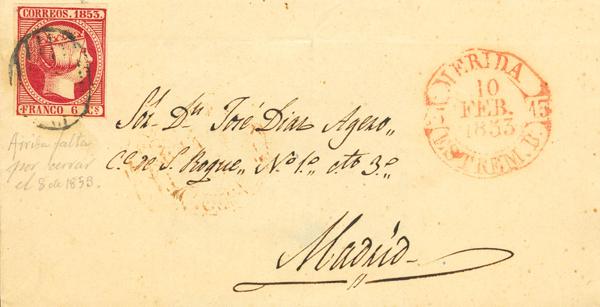 CORREOS. 1853.
FRANCO 6 Cs.
MERIDA
10
FEB.
1853
ESTREM. B.
15
Sor. Dn. José Diaz Agero
Ce. de S. Roque, No. 1o. cto. 3o.
Madrid
Arriba falta
por cerrar
el 8 de 1853.